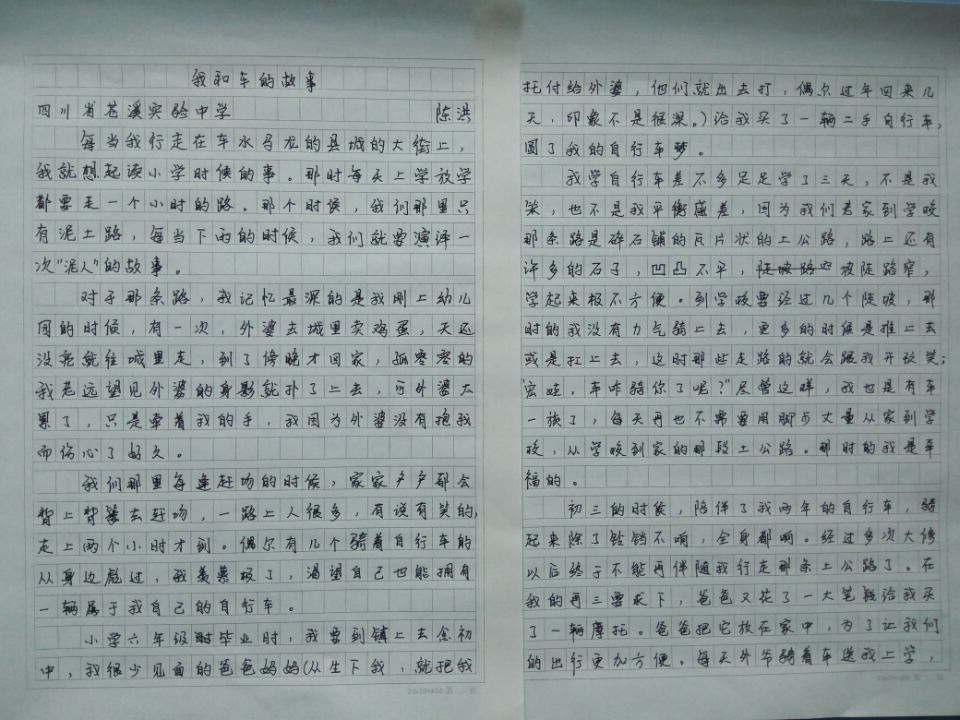 我和车的故事
四川省苍溪实验中学 陈洪
每当我行走在车水马龙的县城的大街上，
我就想起读小学时候的事。那时每天上学放学
都要走一个小时的路。那个时候，我们那里只
有泥土路，每当下雨的时候，我们就要演译一
次“泥人”的故事。
对于那条路，我记忆最深的是我刚上幼儿
园的时候，有一次，外婆去城里卖鸡蛋，天还
没亮就往城里走，到了傍晚才回家，孤零零的
我老远望见外婆的身影就扑了上去，可外婆太
累了，只是牵着我的手，我因为外婆没有抱我
而伤心了好久。
我们那里每逢赶场的时候，家家户户都会
背上背篓去赶场，一路上人很多，有说有笑的，
走上两个小时才到。偶尔有几个骑着自行车的
从身边彪过，我羡慕极了，渴望自己也能拥有
一辆属于我自己的自行车。
小学六年级毕业时，我要到镇上去念初
中，我很少见面的爸爸妈妈（从生下我，就把我
托付给外婆，他们就出去打，偶尔过年回来几
天，印象不是很深。）给我买了一辆二手自行车，
圆了我的自行车梦。
我学自行车差不多足足学了三天，不是我
笨，也不是我平衡感差，因为我们老家到学校
那条路是碎石铺的瓦片状的土公路，路上还有
许多的石子，凹凸不平，坡陡路窄，
学起来极不方便。到学校要经过几个陡坡，那
时的我没有力气骑上去，更多的时候是推上去
或是扛上去，这时那些走路的就会跟我开玩笑：
“宏娃，车咋骑你了呢？”尽管这样，我也是有车
一族了，每天再也不需要用脚步丈量从家到学
校，从学校到家的那段土公路。那时的我是幸
福的。
初三的时候，陪伴了我两年的自行车，骑
起来除了铃铛不响，全身都响。经过多次大修
以后终于不能再伴随我行走那条土公路了。在
我的再三要求下，爸爸又花了一大笔钱给我买
了一辆摩托。爸爸把它放在家中，为了让我们
的出行更加方便。每天外爷骑着车送我上学，
20x20=400 第 页
20x20=400 第 页